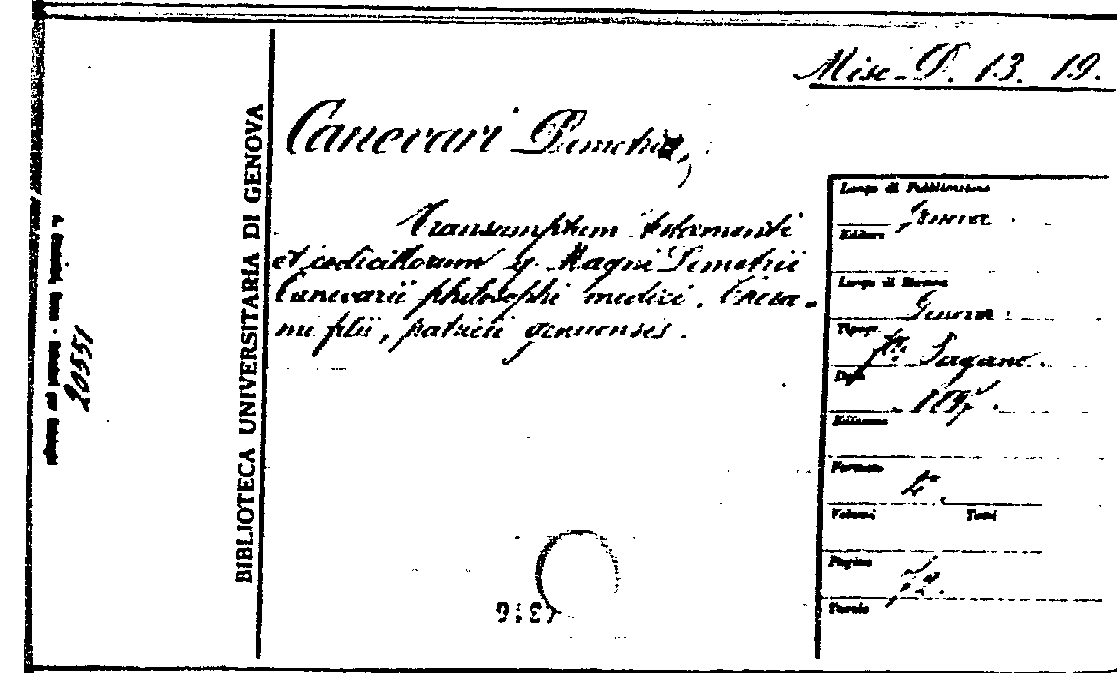 Misc. D. 13. 19.
Canevari Demetrio,
Transumptum testamenti
et codicillorum q. Magni Demetrii
Canevarii philosophi medici,
ni filii, patricii genuensis.
BIBLIOTECA UNIVERSITARIA DI GENOVA
20551
Luogo di Pubblicazione
Genova
Editore
Luogo di Stampa
Genova
Tipogr.
Pagano
Data
Edizione
Formato
4°
Volumi Tomi
Pagine
72.
Tavole